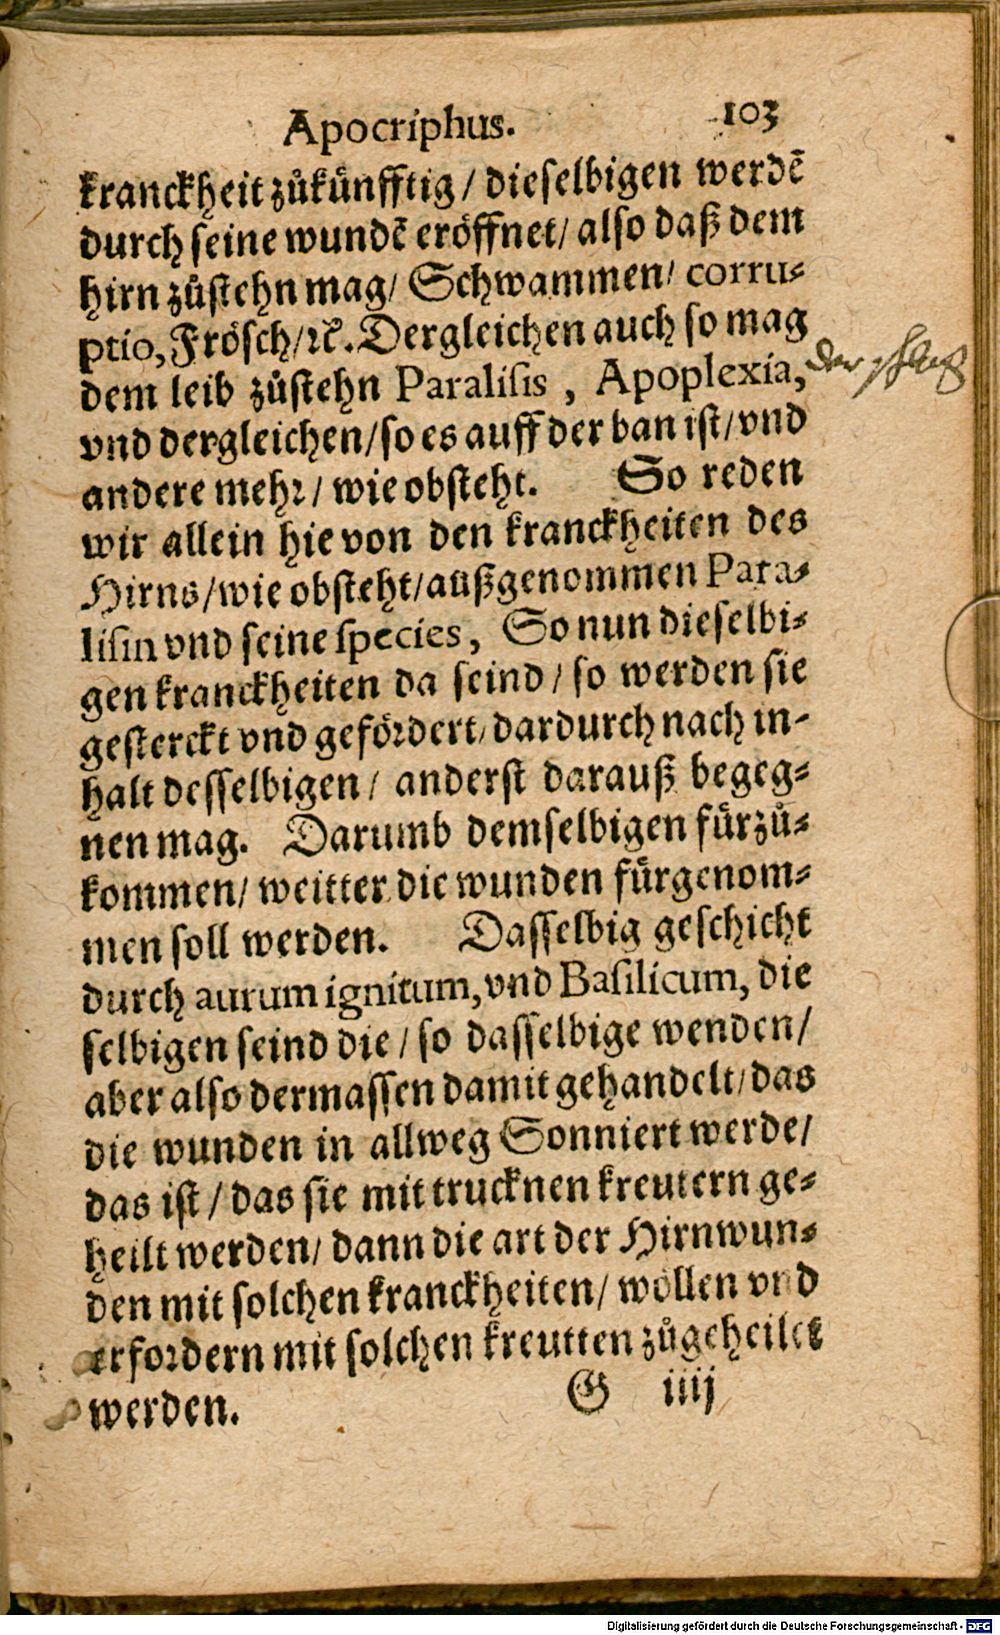 Apocriphus. 103
kranckheit zůkünfftig / dieselbigen werdē
durch seine wundē eröffnet / also daß dem
hirn zůstehn mag / Schwammen / corru⸗
ptio, Frösch / ꝛc. Dergleichen auch so mag
dem leib zůstehn Paralisis , Apoplexia,
der schlag
vnd dergleichen / so es auff der ban ist / vnd
andere mehr / wie obsteht. So reden
wir allein hie von den kranckheiten des
Hirns / wie obsteht / außgenommen Para⸗
lisin vnd seine species, So nun dieselbi⸗
gen kranckheiten da seind / so werden sie
gesterckt vnd gefördert / dardurch nach in⸗
halt desselbigen / anderst darauß begeg⸗
nen mag. Darumb demselbigen fürzů⸗
kommen / weitter die wunden fürgenom⸗
men soll werden. Dasselbig geschicht
durch aurum ignitum, vnd Basilicum, die
selbigen seind die / so dasselbige wenden /
aber also dermassen damit gehandelt / das
die wunden in allweg Sonniert werde /
das ist / das sie mit trucknen kreutern ge⸗
heilt werden / dann die art der Hirnwun⸗
den mit solchen kranckheiten / wöllen vnd
erfordern mit solchen kreutten zůgeheilet
werden. G iiij
Digitalisierung gefördert durch die Deutsche Forschungsgemeinschaft - DFG